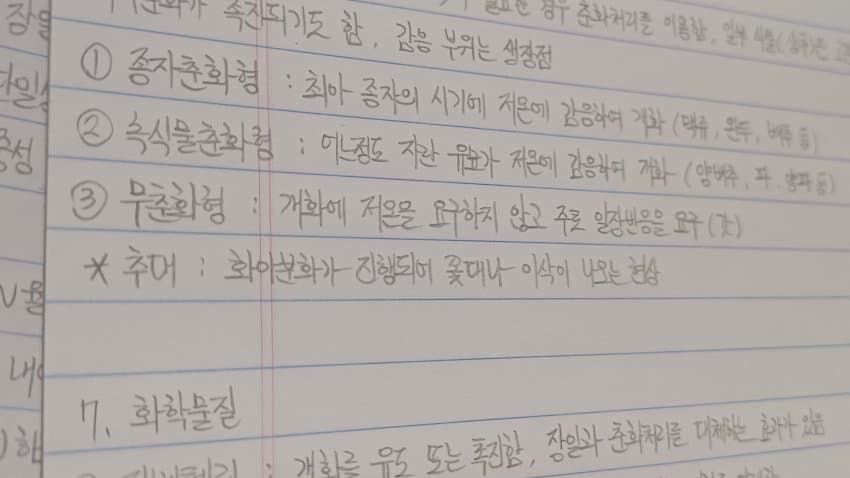 촉진되기도 함, 감응 부위는 생장점
필요한 경우 춘화처리를 이용함, 일부
① 종자춘화형 : 최아 종자의 시기에 저온에 감응하여 개화 (맥류, 완두, 배추 등)
② 녹식물춘화형 : 어느정도 자란 유묘가 저온에 감응하여 개화 (양배추, 파, 양파 등)
③ 무춘화형 : 개화에 저온을 요구하지 않고 주로 일장반응을 요구 (갓)
* 추대 : 화아분화가 진행되어 꽃대나 이삭이 나오는 현상
7. 화학물질
: 개화를 유도 또는 촉진함, 장일과 춘화처리를 대체하는 효과가 있음